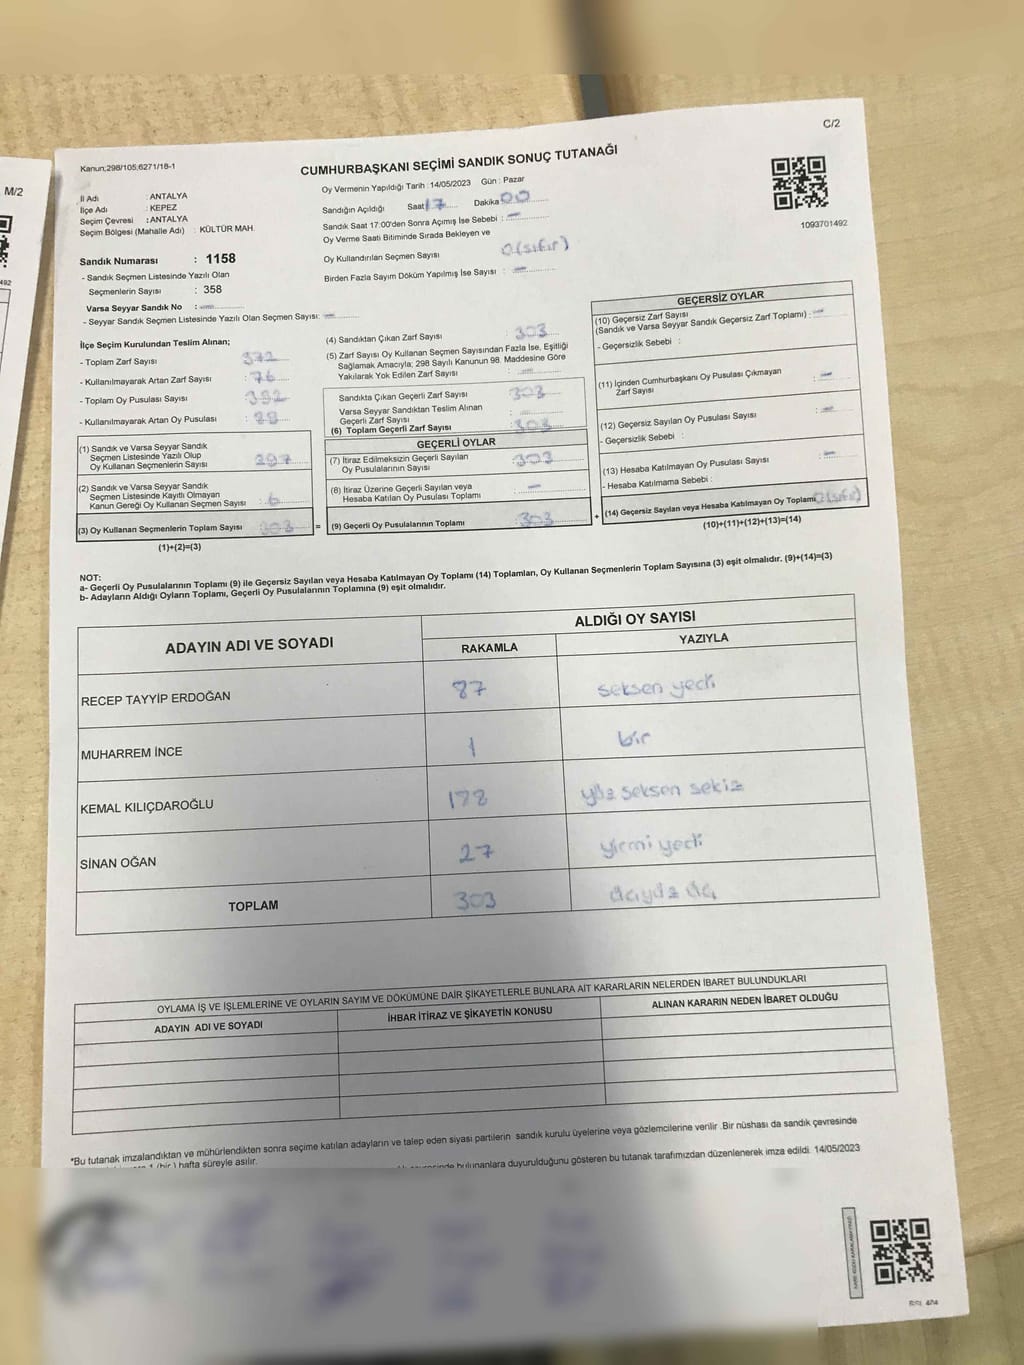 C/2
Kanun;298/105;6271/18-1
CUMHURBAŞKANI SEÇİMİ SANDIK SONUÇ TUTANAĞI
M/2
İl Adı : ANTALYA
İlçe Adı : KEPEZ
Seçim Çevresi : ANTALYA
Seçim Bölgesi (Mahalle Adı) : KÜLTÜR MAH.
Oy Vermenin Yapıldığı Tarih : 14/05/2023 Gün : Pazar
Sandığın Açıldığı Saat 17 Dakika 00
Sandık Saat 17:00'den Sonra Açılmış İse Sebebi : —
Oy Verme Saati Bitiminde Sırada Bekleyen ve
Oy Kullandırılan Seçmen Sayısı 0(sıfır)
Birden Fazla Sayım Döküm Yapılmış İse Sayısı : —
1093701492
Sandık Numarası : 1158
- Sandık Seçmen Listesinde Yazılı Olan
Seçmenlerin Sayısı : 358
Varsa Seyyar Sandık No : —
- Seyyar Sandık Seçmen Listesinde Yazılı Olan Seçmen Sayısı: —
İlçe Seçim Kurulundan Teslim Alınan;
- Toplam Zarf Sayısı
- Kullanılmayarak Artan Zarf Sayısı : 76
- Toplam Oy Pusulası Sayısı
- Kullanılmayarak Artan Oy Pusulası
(1) Sandık ve Varsa Seyyar Sandık
Seçmen Listesinde Yazılı Olup
Oy Kullanan Seçmenlerin Sayısı 297
(2) Sandık ve Varsa Seyyar Sandık
Seçmen Listesinde Kayıtlı Olmayan
Kanun Gereği Oy Kullanan Seçmen Sayısı : 6
(3) Oy Kullanan Seçmenlerin Toplam Sayısı 303 =
(1)+(2)=(3)
(4) Sandıktan Çıkan Zarf Sayısı : 303
(5) Zarf Sayısı Oy Kullanan Seçmen Sayısından Fazla İse, Eşitliği
Sağlamak Amacıyla; 298 Sayılı Kanunun 98. Maddesine Göre
Yakılarak Yok Edilen Zarf Sayısı : —
Sandıkta Çıkan Geçerli Zarf Sayısı 303
Varsa Seyyar Sandıktan Teslim Alınan
Geçerli Zarf Sayısı : —
(6) Toplam Geçerli Zarf Sayısı : 303
GEÇERLİ OYLAR
(7) İtiraz Edilmeksizin Geçerli Sayılan
Oy Pusulalarının Sayısı : 303
(8) İtiraz Üzerine Geçerli Sayılan veya
Hesaba Katılan Oy Pusulası Toplamı : —
(9) Geçerli Oy Pusulalarının Toplamı : 303 +
GEÇERSİZ OYLAR
(10) Geçersiz Zarf Sayısı
(Sandık ve Varsa Seyyar Sandık Geçersiz Zarf Toplamı) : —
- Geçersizlik Sebebi :
(11) İçinden Cumhurbaşkanı Oy Pusulası Çıkmayan
Zarf Sayısı : —
(12) Geçersiz Sayılan Oy Pusulası Sayısı : —
- Geçersizlik Sebebi :
(13) Hesaba Katılmayan Oy Pusulası Sayısı : —
- Hesaba Katılmama Sebebi :
(14) Geçersiz Sayılan veya Hesaba Katılmayan Oy Toplamı 0(sıfır)
(10)+(11)+(12)+(13)=(14)
NOT:
a- Geçerli Oy Pusulalarının Toplamı (9) ile Geçersiz Sayılan veya Hesaba Katılmayan Oy Toplamı (14) Toplamları, Oy Kullanan Seçmenlerin Toplam Sayısına (3) eşit olmalıdır. (9)+(14)=(3)
b- Adayların Aldığı Oyların Toplamı, Geçerli Oy Pusulalarının Toplamına (9) eşit olmalıdır.
ADAYIN ADI VE SOYADI ALDIĞI OY SAYISI
RAKAMLA YAZIYLA
RECEP TAYYİP ERDOĞAN 87 seksen yedi
MUHARREM İNCE 1 bir
KEMAL KILIÇDAROĞLU 188 yüz seksen sekiz
SİNAN OĞAN 27 yirmi yedi
TOPLAM 303 üçyüz üç
OYLAMA İŞ VE İŞLEMLERİNE VE OYLARIN SAYIM VE DÖKÜMÜNE DAİR ŞİKAYETLERLE BUNLARA AİT KARARLARIN NELERDEN İBARET BULUNDUKLARI
ADAYIN ADI VE SOYADI İHBAR İTİRAZ VE ŞİKAYETİN KONUSU ALINAN KARARIN NEDEN İBARET OLDUĞU
*Bu tutanak imzalandıktan ve mühürlendikten sonra seçime katılan adayların ve talep eden siyasi partilerin sandık kurulu üyelerine veya gözlemcilerine verilir .Bir nüshası da sandık çevresinde
1 (bir ) hafta süreyle asılır.
bulunanlara duyurulduğunu gösteren bu tutanak tarafımızdan düzenlenerek imza edildi. 14/05/2023